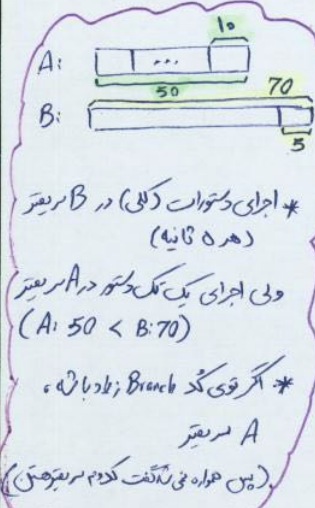 10
A:
...
50
70
B:
5
* اجرای دستورات (کلی) در B سریعتر
(هر 5 ثانیه)
ولی اجرای یک تک دستور در A سریعتر
(A: 50 < B: 70)
* اگر توی کد Branch زیاد باشه،
A سریعتر
(پس همواره نمی‌شه گفت کدوم سریعتر هستن)